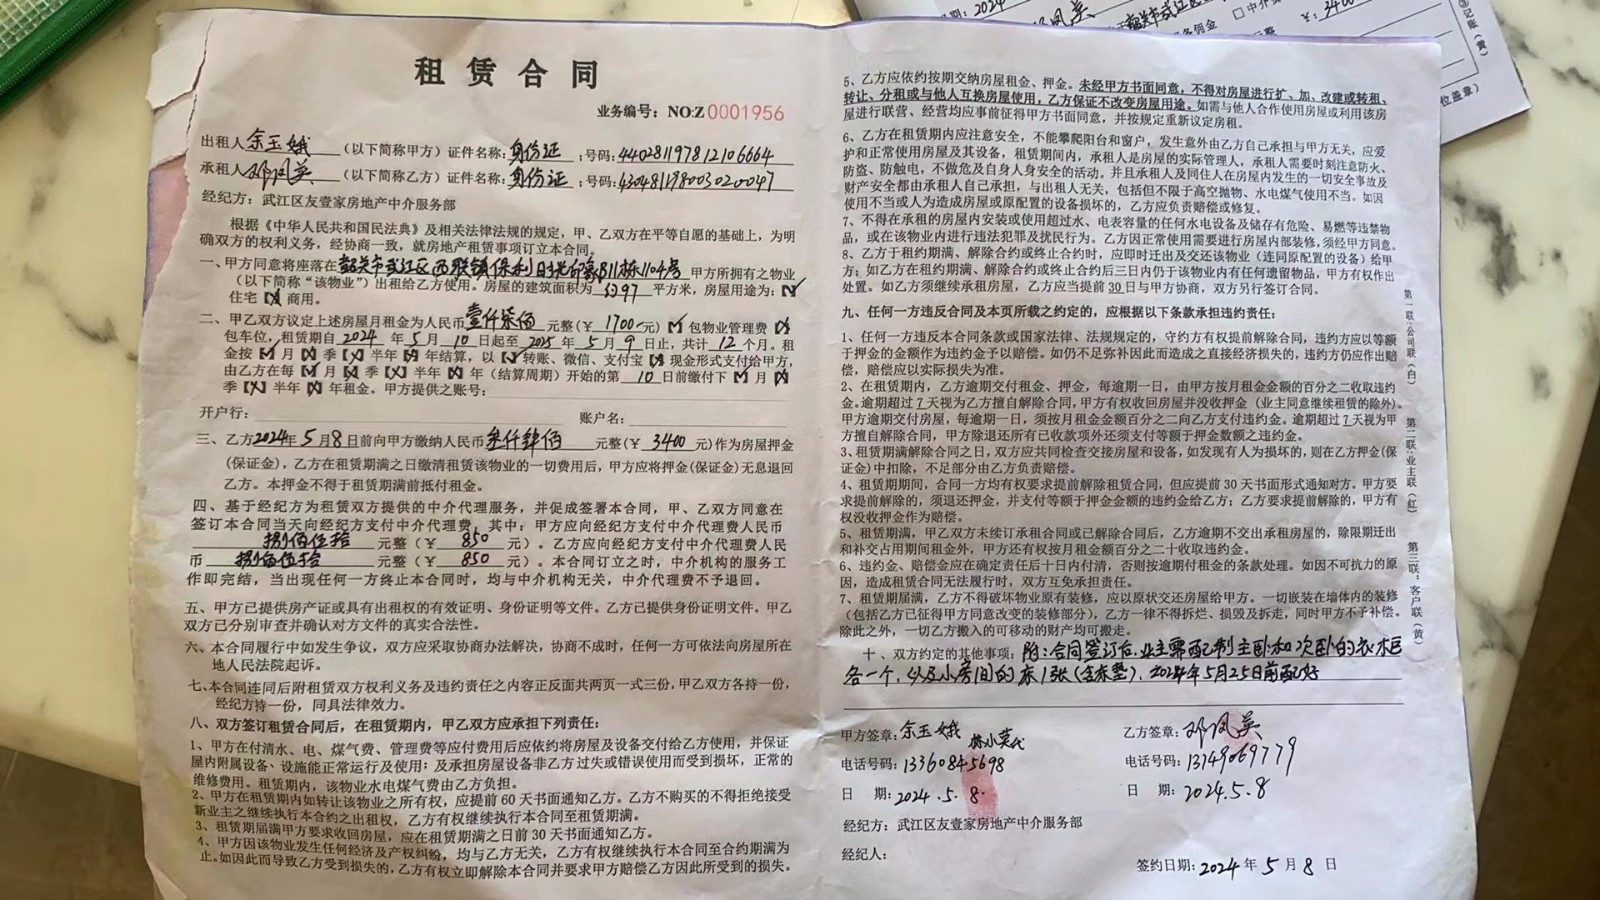 租赁合同
业务编号：NO:Z0001956
出租人余玉娥（以下简称甲方）证件名称：身份证；号码：440281197812106664
承租人邓凤英（以下简称乙方）证件名称：身份证；号码：430481198003020047
经纪方：武江区友壹家房地产中介服务部
根据《中华人民共和国民法典》及相关法律法规的规定，甲、乙双方在平等自愿的基础上，为明
确双方的权利义务，经协商一致，就房地产租赁事项订立本合同。
一、甲方同意将座落在韶关市武江区西联镇保利 B11栋1104房 甲方所拥有之物业
（以下简称“该物业”）出租给乙方使用。房屋的建筑面积为 平方米，房屋用途为：
住宅 商用。
二、甲乙双方议定上述房屋月租金为人民币壹仟柒佰元整（￥1700元） 包物业管理费
包车位，租赁期自2024年5月10日起至2025年5月9日止，共计12个月。租
金按 月 季 半年 年结算，以 转账、微信、支付宝 现金形式支付给甲方，
由乙方在每 月 季 半年 年（结算周期）开始的第10日前缴付下 月
季 半年 年租金。甲方提供之账号：
开户行： 账户名：
三、乙方2024年5月8日前向甲方缴纳人民币叁仟肆佰元整（￥3400元）作为房屋押金
（保证金），乙方在租赁期满之日缴清租赁该物业的一切费用后，甲方应将押金（保证金）无息退回
乙方。本押金不得于租赁期满前抵付租金。
四、基于经纪方为租赁双方提供的中介代理服务，并促成签署本合同，甲、乙双方同意在
签订本合同当天向经纪方支付中介代理费，其中：甲方应向经纪方支付中介代理费人民币
捌佰伍拾元整（￥850元）。乙方应向经纪方支付中介代理费人民
币捌佰伍拾元整（￥850元）。本合同订立之时，中介机构的服务工
作即完结，当出现任何一方终止本合同时，均与中介机构无关，中介代理费不予退回。
五、甲方已提供房产证或具有出租权的有效证明、身份证明等文件。乙方已提供身份证明文件。甲乙
双方已分别审查并确认对方文件的真实合法性。
六、本合同履行中如发生争议，双方应采取协商办法解决，协商不成时，任何一方可依法向房屋所在
地人民法院起诉。
七、本合同连同后附租赁双方权利义务及违约责任之内容正反面共两页一式三份，甲乙双方各持一份，
经纪方持一份，同具法律效力。
八、双方签订租赁合同后，在租赁期内，甲乙双方应承担下列责任：
1、甲方在付清水、电、煤气费、管理费等应付费用后应依约将房屋及设备交付给乙方使用，并保证
屋内附属设备、设施能正常运行及使用；及承担房屋设备非乙方过失或错误使用而受到损坏，正常的
维修费用。租赁期内，该物业水电煤气费由乙方负担。
2、甲方在租赁期内如转让该物业之所有权，应提前60天书面通知乙方。乙方不购买的不得拒绝接受
新业主之继续执行本合约之出租权，乙方有权继续执行本合同至租赁期满。
3、租赁期届满甲方要求收回房屋，应在租赁期满之日前30天书面通知乙方。
4、甲方因该物业发生任何经济及产权纠纷，均与乙方无关，乙方有权继续执行本合同至合约期满为
止。如因此而导致乙方受到损失的，乙方有权立即解除本合同并要求甲方赔偿乙方因此所受到的损失。
5、乙方应依约按期交纳房屋租金、押金。未经甲方书面同意，不得对房屋进行扩、加、改建或转租、
转让、分租或与他人互换房屋使用，乙方保证不改变房屋用途。如需与他人合作使用房屋或利用该房
屋进行联营、经营均应事前征得甲方书面同意，并按规定重新议定房租。
6、乙方在租赁期内应注意安全，不能攀爬阳台和窗户，发生意外由乙方自己承担与甲方无关，应爱
护和正常使用房屋及其设备，租赁期间内，承租人是房屋的实际管理人，承租人需要时刻注意防火、
防盗、防触电，不做危及自身人身安全的活动。并且承租人及同住人在房屋内发生的一切安全事故及
财产安全都由承租人自己承担，与出租人无关，包括但不限于高空抛物、水电煤气使用不当。如因
使用不当或人为造成房屋或原配置的设备损坏的，乙方应负责赔偿或修复。
7、不得在承租的房屋内安装或使用超过水、电表容量的任何水电设备及储存有危险、易燃等违禁物
品，或在该物业内进行违法犯罪及扰民行为。乙方因正常使用需要进行房屋内部装修，须经甲方同意。
8、乙方于租约期满、解除合约或终止合约时，应即时迁出及交还该物业（连同原配置的设备）给甲
方；如乙方在租约期满、解除合约或终止合约后三日内仍于该物业内有任何遗留物品，甲方有权作出
处置。如乙方须继续承租房屋，乙方应当提前30日与甲方协商，双方另行签订合同。
九、任何一方违反合同及本页所载之约定的，应根据以下条款承担违约责任：
1、任何一方违反本合同条款或国家法律、法规规定的，守约方有权提前解除合同，违约方应以等额
于押金的金额作为违约金予以赔偿。如仍不足弥补因此而造成之直接经济损失的，违约方仍应作出赔
偿，赔偿应以实际损失为准。
2、在租赁期内，乙方逾期交付租金、押金，每逾期一日，由甲方按月租金金额的百分之二收取违约
金。逾期超过7天视为乙方擅自解除合同，甲方有权收回房屋并没收押金（业主同意继续租赁的除外）。
甲方逾期交付房屋，每逾期一日，须按月租金金额百分之二向乙方支付违约金。逾期超过7天视为甲
方擅自解除合同，甲方除退还所有已收款项外还须支付等额于押金数额之违约金。
3、租赁期满解除合同之日，双方应共同检查交接房屋和设备，如发现有人为损坏的，则在乙方押金（保
证金）中扣除，不足部分由乙方负责赔偿。
4、租赁期期间，合同一方均有权要求提前解除租赁合同，但应提前30天书面形式通知对方。甲方要
求提前解除的，须退还押金，并支付等额于押金金额的违约金给乙方；乙方要求提前解除的，甲方有
权没收押金作为赔偿。
5、租赁期满，甲乙双方未续订承租合同或已解除合同后，乙方逾期不交出承租房屋的，除限期迁出
和补交占用期间租金外，甲方还有权按月租金额百分之二十收取违约金。
6、违约金、赔偿金应在确定责任后十日内付清，否则按逾期付租金的条款处理。如因不可抗力的原
因，造成租赁合同无法履行时，双方互免承担责任。
7、租赁期届满，乙方不得破坏物业原有装修，应以原状交还房屋给甲方。一切嵌装在墙体内的装修
（包括乙方已征得甲方同意改变的装修部分），乙方一律不得拆烂、损毁及拆走，同时甲方不予补偿。
除此之外，一切乙方搬入的可移动的财产均可搬走。
十、双方约定的其他事项：附：合同签订后，业主需配制主卧和次卧的衣柜
各一个，以及小房间的床1张（含床垫），2024年5月25日前配好
甲方签章：余玉娥 林小英代
乙方签章：邓凤英
电话号码：13360845698
电话号码：13749069779
日 期：2024.5.8.
日 期：2024.5.8
经纪方：武江区友壹家房地产中介服务部
经纪人：
签约日期：2024年5月8日
第一联：公司联（白）
第二联：业主联（红）
第三联：客户联（黄）